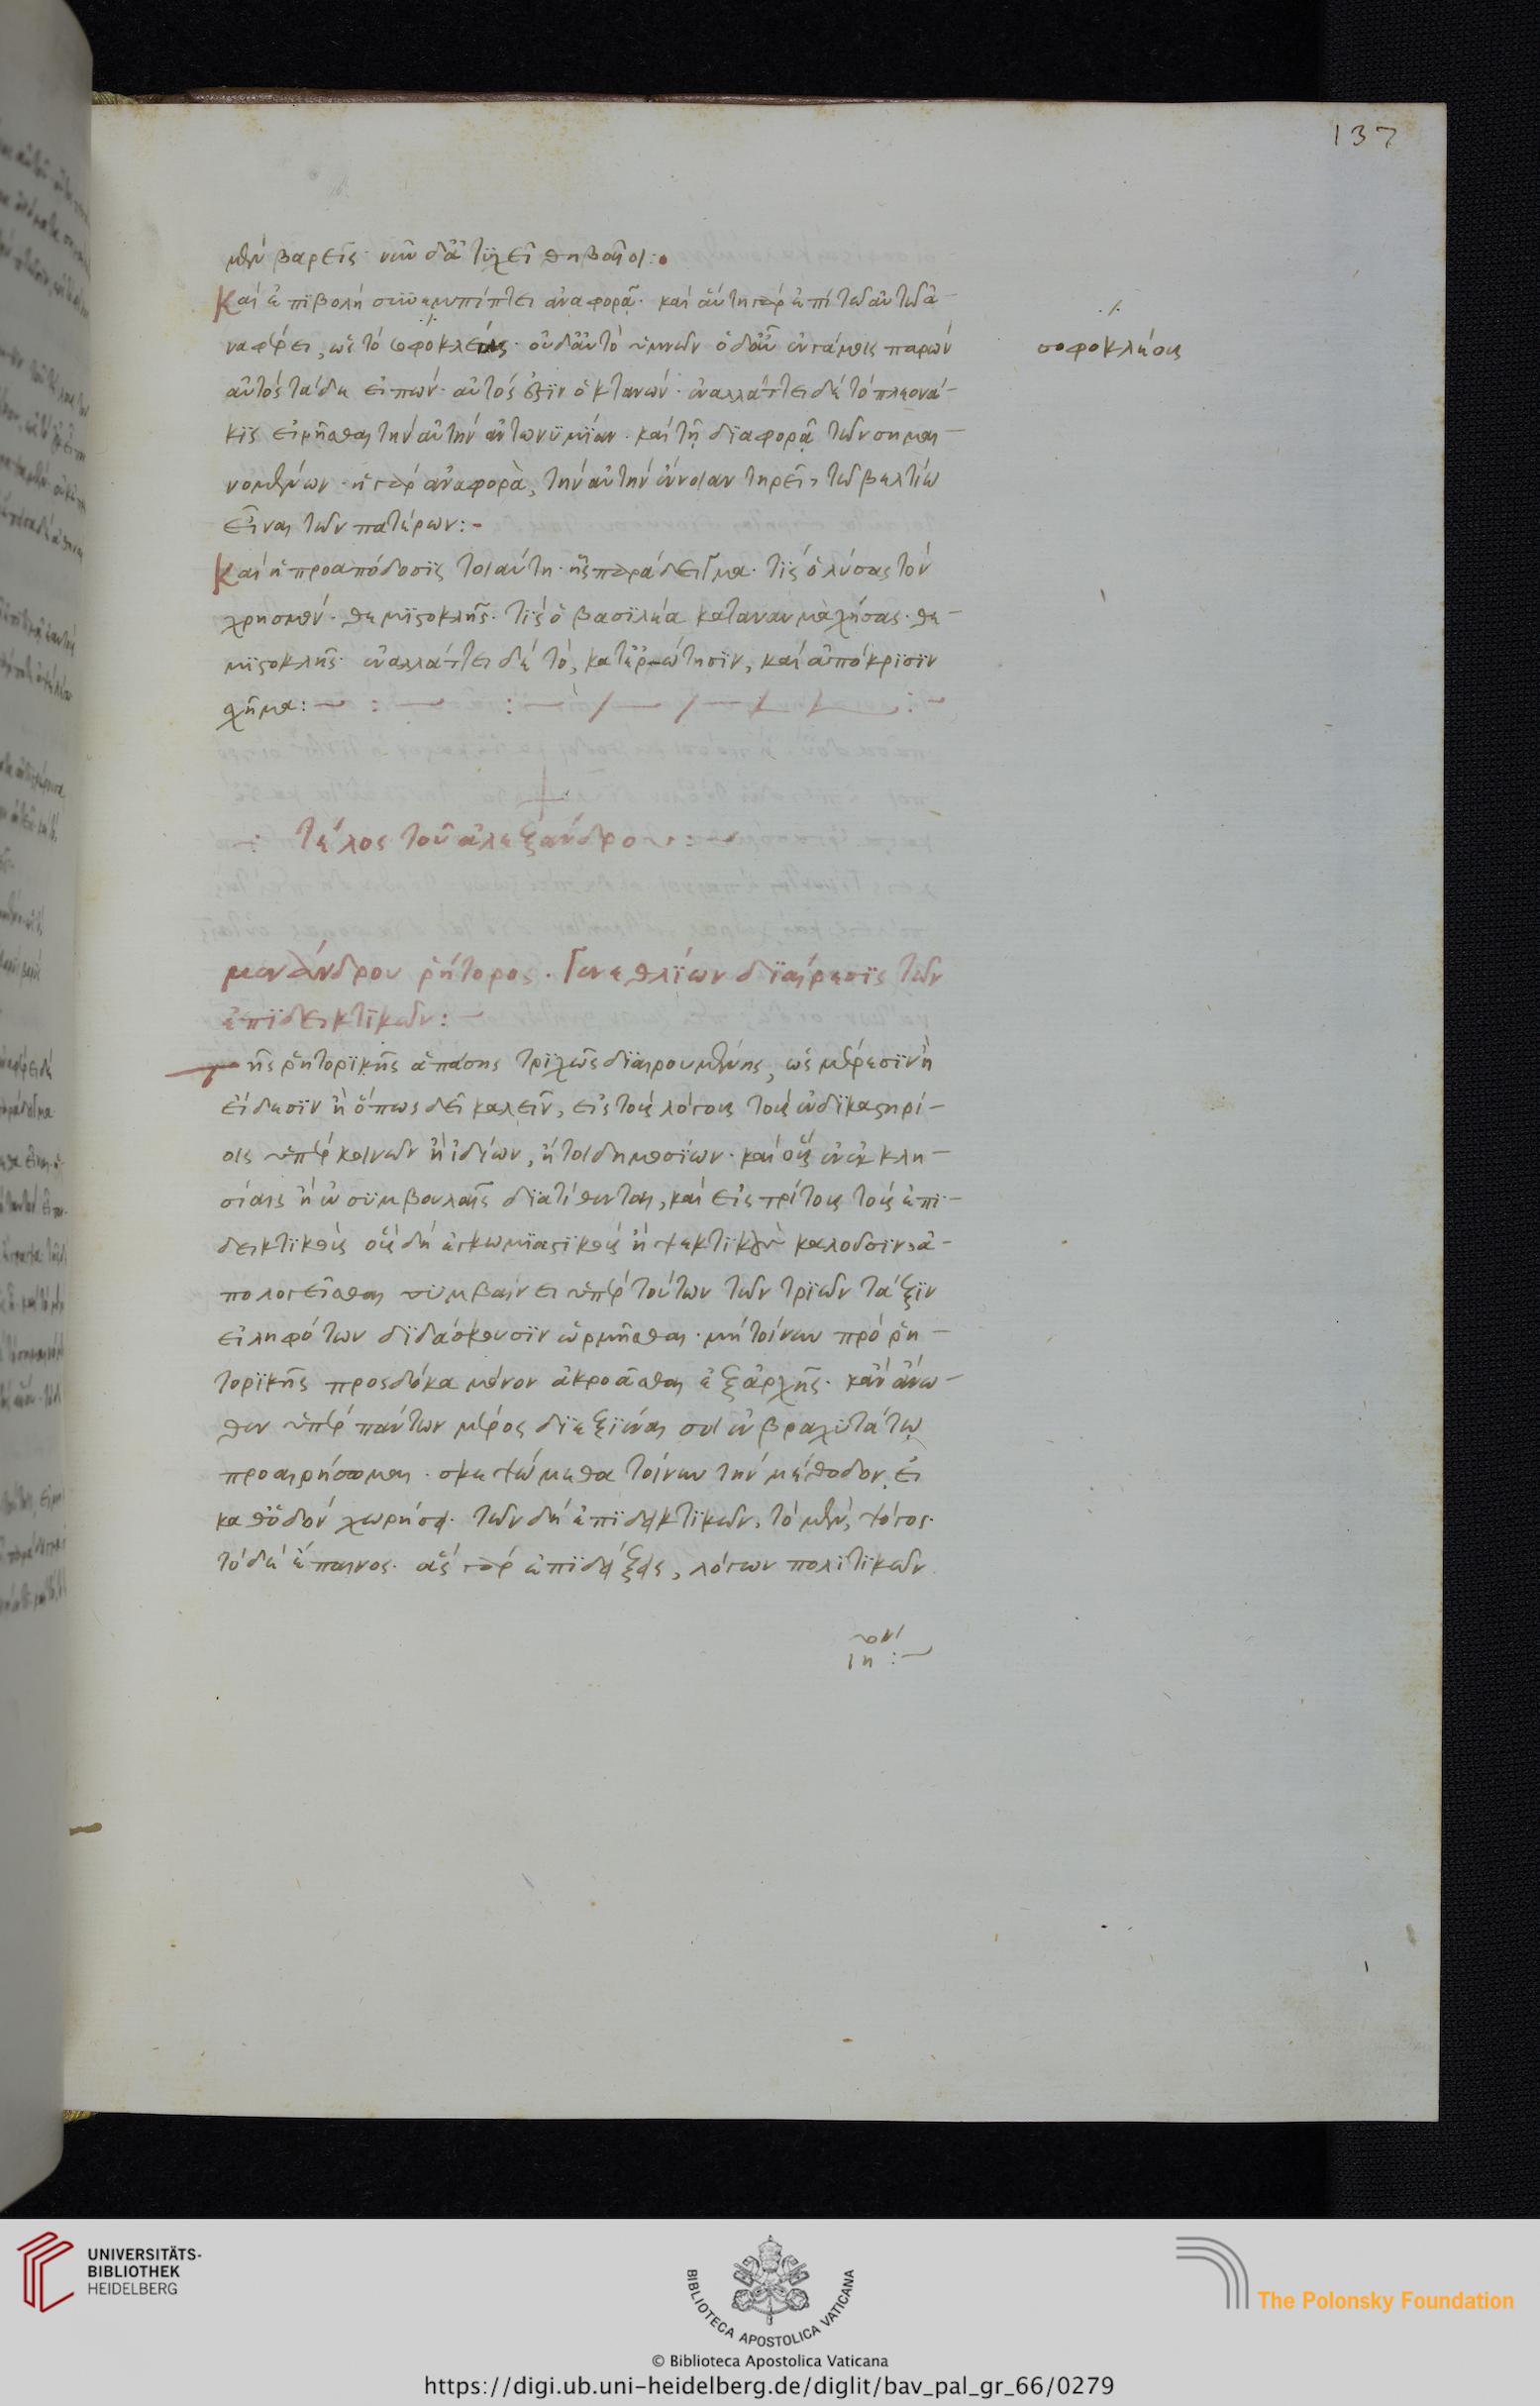 137
μὲν βαρεῖς· νῦν δ' ἀτυχεῖ θηβαῖοι:
Καὶ ἐπιβολὴ συνεμπίπτει ἀναφορᾷ· καὶ αὕτη γὰρ ἐπὶ τῶ αὐτῶ ἀ-
ναφέρει, ὡς τὸ σοφόκλειος· οὐδ' αὐτὸ ὑμνῶν ὁ δ' αὖ παρὼν
σοφοκλέους
αὐτὸς τάδε εἰπών· αὐτός ἐστιν ὁ κτανών· ἐναλλάττει δὲ τὸ πλεονά-
κις εἰρῆσθαι τὴν αὐτὴν ἀντωνυμίαν· καὶ τῇ διαφορᾷ τῶν σημαι-
νομένων· ἡ γὰρ ἀναφορὰ, τὴν αὐτὴν ἔννοιαν τηρεῖ, τῶ βελτίω
εἶναι τῶν πατέρων:-
Καὶ ἡ προαπόδοσις τοιαύτη· ἧς παράδειγμα· τίς ὁ λύσας τὸν
χρησμόν· θεμιστοκλῆς· τίς ὁ βασιλέα καταναυμαχήσας· θε-
μιστοκλῆς· ἐναλλάττει δὲ τὸ, κατ' ἐρώτησιν, καὶ ἀπόκρισιν
σχῆμα:
τέλος τοῦ ἀλεξάνδρου:
μενάνδρου ῥήτορος. Γενεθλίων διαίρεσις τῶν
ἐπιδεικτικῶν:
Τῆς ῥητορικῆς ἁπάσης τριχῶς διαιρουμένης, ὡς μέρεσιν ἢ
εἴδεσιν ἢ ὅπως δεῖ καλεῖν, εἰς τοὺς λόγους τοὺς ἐν δικαστηρί-
οις ὑπὲρ κοινῶν ἢ ἰδίων, ἤτοι δημοσίων· καὶ οὓς ἐν ἐκκλη-
σίαις ἢ ἐν συμβουλαῖς διατίθενται, καὶ εἰς τρίτους τοὺς ἐπι-
δεικτικοὺς οὓς δὴ ἐγκωμιαστικοὺς ἢ ψεκτικοὺς καλοῦσιν, ἀ-
πολογεῖσθαι συμβαίνει ὑπὲρ τούτων τῶν τριῶν τάξιν
εἰληφότων διδάσκουσιν ὡρμῆσθαι· μὴ τοίνυν πρὸ ῥη-
τορικῆς προσδόκα μόνον ἀκροᾶσθαι ἐξ ἀρχῆς· κἂν ἄνω-
θεν ὑπὲρ πάντων μέρος διεξιέναι σοι ἐν βραχυτάτῳ
προαιρήσομαι· σκεψώμεθα τοίνυν τὴν μέθοδον, εἰ
καθ' ὁδὸν χωρήσει· τῶν δὴ ἐπιδεικτικῶν, τὸ μὲν, ψόγος·
τὸ δὲ ἔπαινος· ἃς γὰρ ἐπιδείξεις, λόγων πολιτικῶν
UNIVERSITÄTS-
BIBLIOTHEK
HEIDELBERG
BIBLIOTECA APOSTOLICA VATICANA
The Polonsky Foundation
© Biblioteca Apostolica Vaticana
https://digi.ub.uni-heidelberg.de/diglit/bav_pal_gr_66/0279